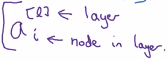 a [l] ← layer
i ← node in layer.